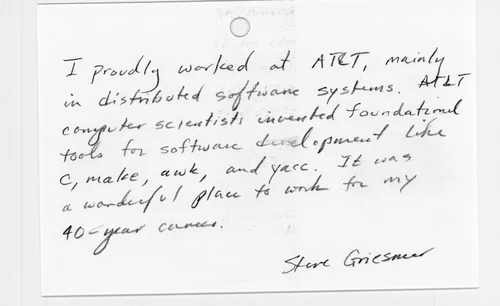 I proudly worked at AT&T, mainly
in distributed software systems. AT&T
computer scientists invented foundational
tools for software development like
C, make, awk, and yacc. It was
a wonderful place to work for my
40-year career.
Steve Griesmer